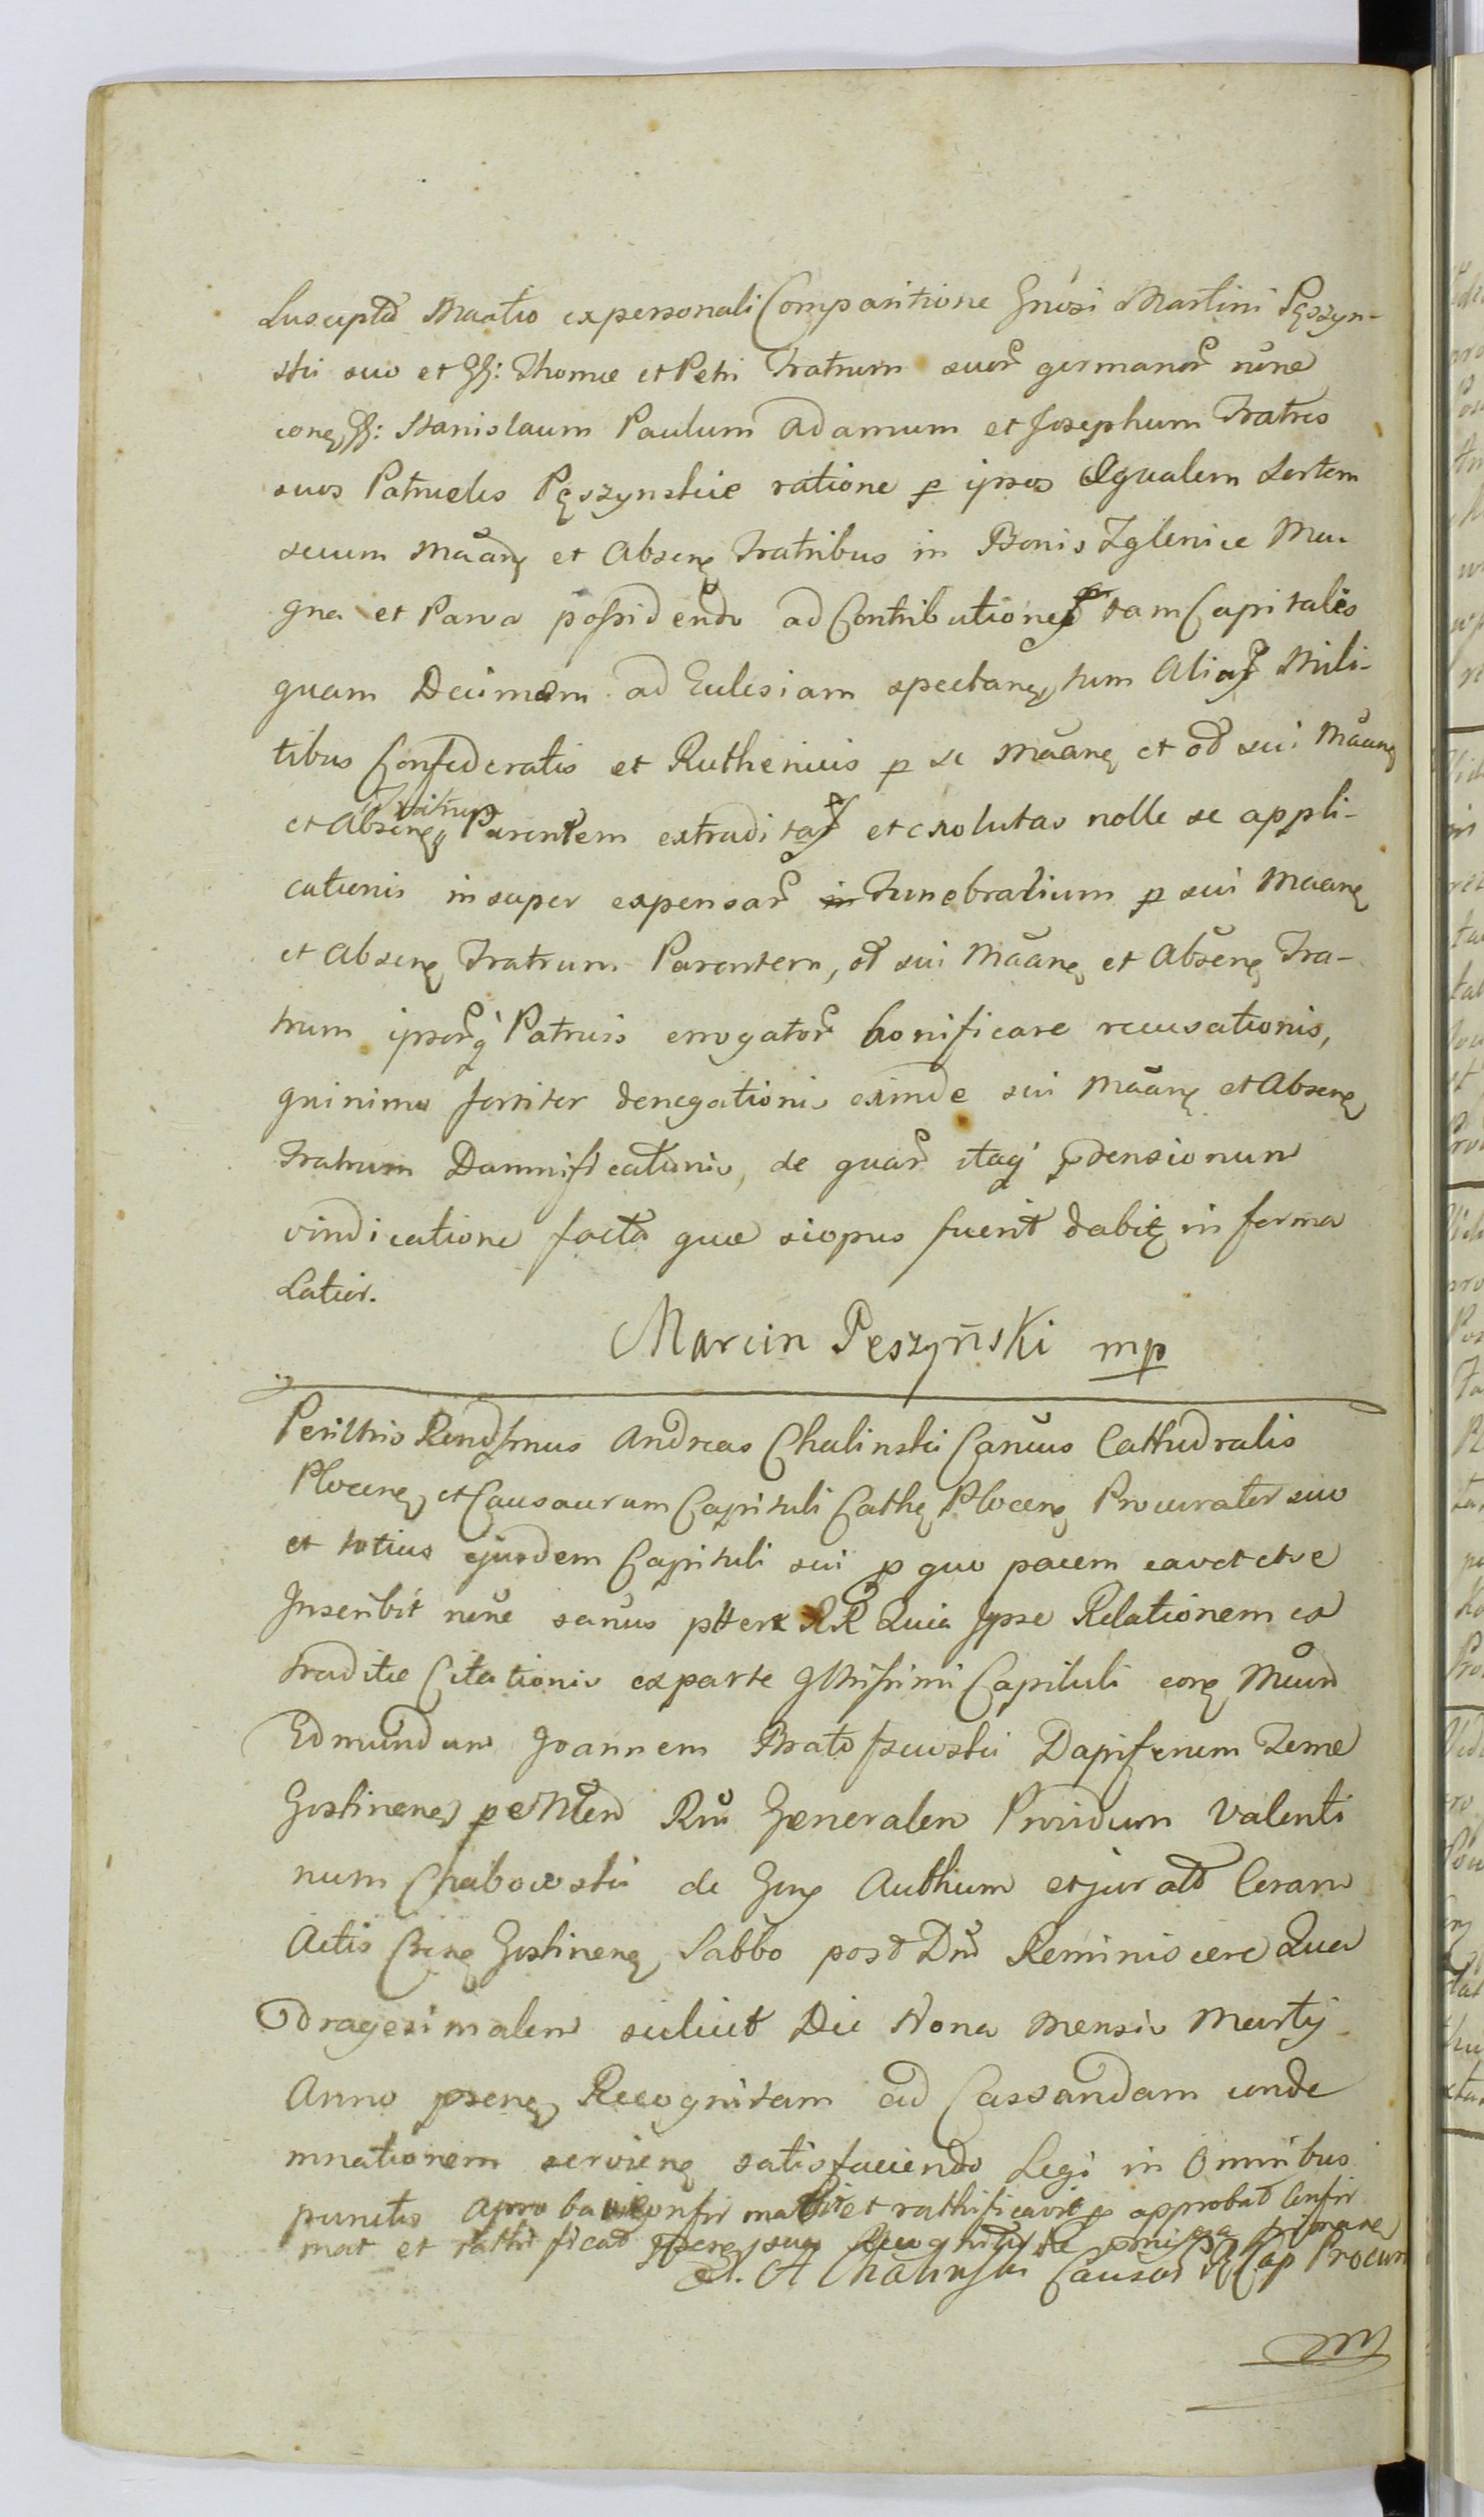 Suscepta Maatio expersonali Comparitione Gnosi Martini Pęszyn-
ski suo et GG: Thomæ et Petri Fratrum suor germanor nunc
conq GG: Stanislaum Paulum Adamum et Josephum Fratres
suos Patrueles Pęszynskie ratione p ipsos Æqualem Sortem
secum Maanq et Absenq Fratribus in Bonis Zglenice Ma-
gna et Parva possidendo ad Contributiones tam Capitales
quam Decimam ad Eclesiam spectanq, tum Aliar Mili-
tibus Confederatis et Ruthenicis p se Maanq et od sui Maanq
et Absenq Fratrum Parentem extraditas et exolutas nolle se appli-
cationis insuper expensar in Funebralium p sui Maanq
et Absenq Fratrum Parentem, od sui Maanq et Absenq Fra-
trum ipsorq Patruis errogator bonificare recusationis,
quinimo fortiter denegationis exinde sui Maanq et Absenq
Fratrum Damnificationis, de quar itaq ptensionum
vindicatione facta quæ siopus fuerit dabit in forma
Latior.
Marcin Pęszyński mp
Perilltris Rendssmus Andreas Chalinski Cancus Cathedralis
Plocenq et Causarum Capituli Cathq Plocenq Procurator suo
et totius ejusdem Capituli sui p quo pacem cavet et se
Inscribit nunc sanus ptter RR Quia Ipse Relationem ex
traditæ Citationis exparte Illtrissimi Capituli conq Mcum
Edmundum Joannem Bratoszewski Dapiferum Terræ
Gostinenq p Mtem Rni Generalem Providum Valenti
num Chabowski de Gonq Authium et jurato Coram
Actis Crenq Gostinenq Sabbo post Dnm Reminiscere Qua
dragesimalem scilicet Die Nona Mensis Martij
Anno psenq Recognitam ad Cassandam conde
mnationem servienq satisfaciendo Legi in Omnibus
punctis aprobavit confirmavit et rathificavit p approbat Confir
mat et rathificat psenq sua Recognitione pmissa
A Chalinski Causar Cap Procur